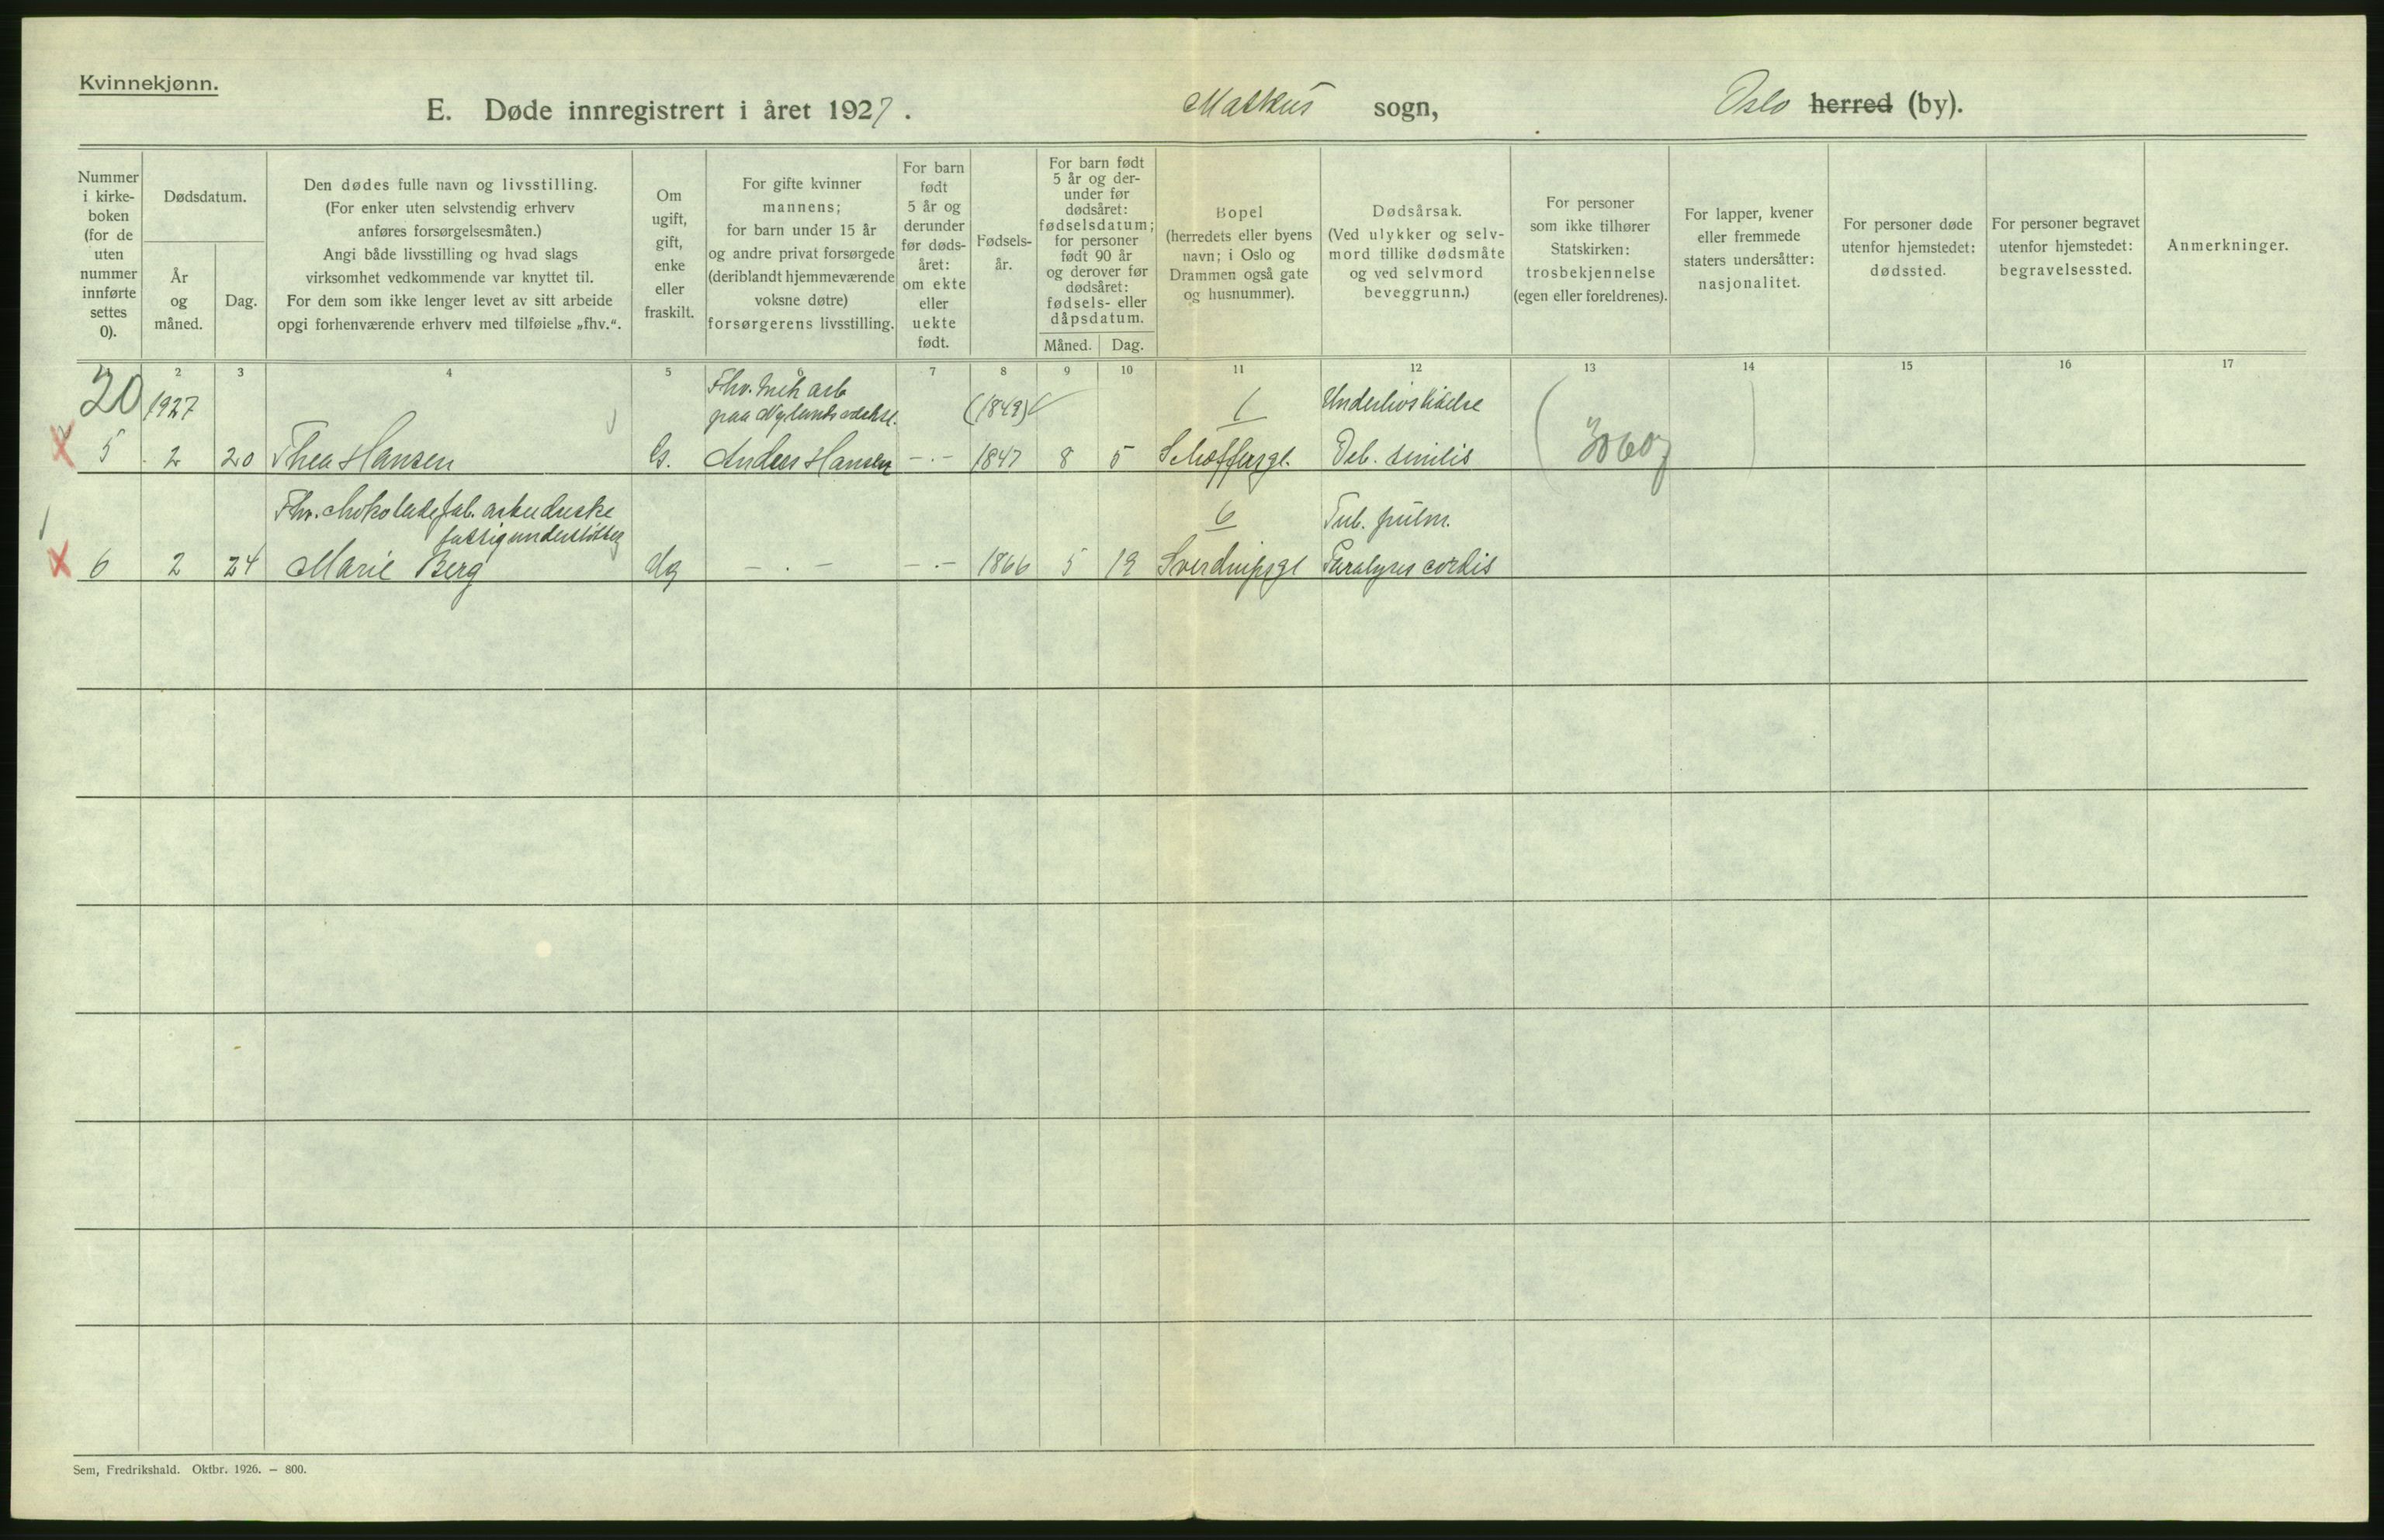 Kvinnekjønn.
E. Døde innregistrert i året 1927.
Markus sogn,
Oslo herred (by).
Nummer i kirkeboken (for de uten nummer innførte settes 0).
Dødsdatum.
År og måned.
Dag.
Den dødes fulle navn og livsstilling.
(For enker uten selvstendig erhverv
anføres forsørgelsesmåten.)
Angi både livsstilling og hvad slags
virksomhet vedkommende var knyttet til.
For dem som ikke lenger levet av sitt arbeide
opgi forhenværende erhverv med tilføielse „fhv.“.
Om
ugift,
gift,
enke
eller
fraskilt.
For gifte kvinner
mannens;
for barn under 15 år
og andre privat forsørgede
(deriblandt hjemmeværende
voksne døtre)
forsørgerens livsstilling.
For barn
født
5 år og
derunder
før døds-
året:
om ekte
eller
uekte
født.
Fødsels-
år.
For barn født
5 år og der-
under før
dødsåret:
fødselsdatum;
for personer
født 90 år
og derover før
dødsåret:
fødsels- eller
dåpsdatum.
Måned.
Dag.
Bopel
(herredets eller byens
navn; i Oslo og
Drammen også gate
og husnummer).
Dødsårsak.
(Ved ulykker og selv-
mord tillike dødsmåte
og ved selvmord
beveggrunn.)
For personer
som ikke tilhører
Statskirken:
trosbekjennelse
(egen eller foreldrenes).
For lapper, kvener
eller fremmede
staters undersåtter:
nasjonalitet.
For personer døde
utenfor hjemstedet:
dødssted.
For personer begravet
utenfor hjemstedet:
begravelsessted.
Anmerkninger.
2 3 4 5 6 7 8 9 10 11 12 13 14 15 16 17
20 1927 Fhv. mek arb (1849) 1
paa Nylands
5 2 20 Thea Hansen G. Anders Hansen -.- 1847 8 5 Schæffersgt. Deb. senilis
Fhv. chokoladefab. arbeiderske 6 Tub. pulm.
fattigunderstøttet
6 2 24 Marie Berg ug - . - -.- 1866 5 19 Sverdrupsgt Paralyses cordis
Sem, Fredrikshald. Oktbr. 1926. — 800.